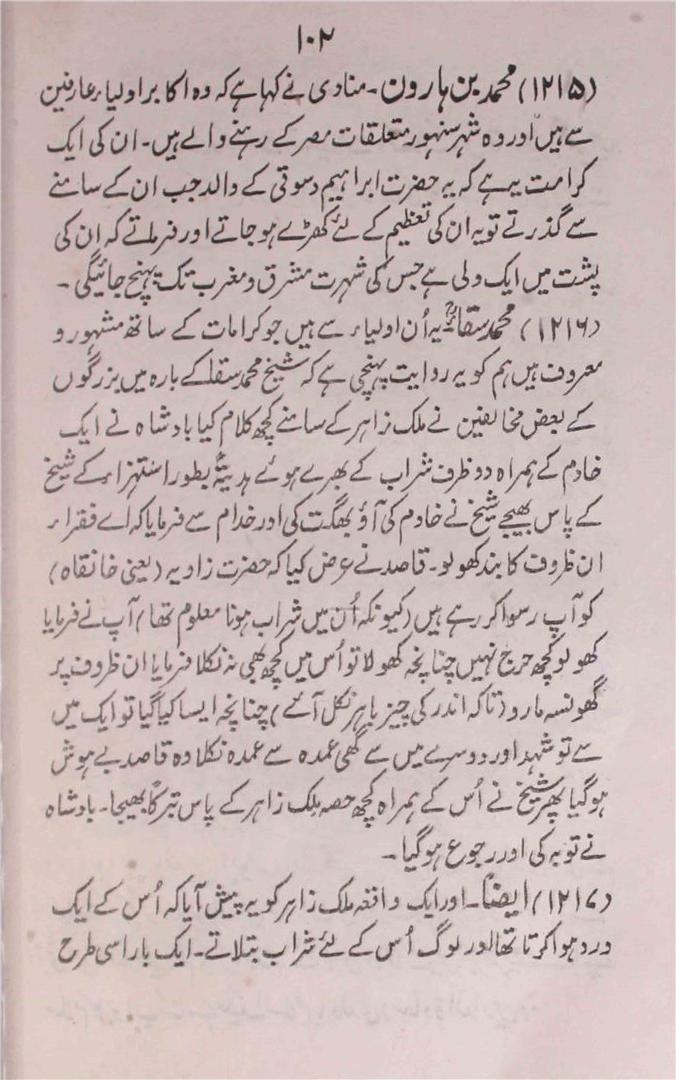 ۱۰۲
(۱۲۱۵) محمد بن ہارون۔ منادی نے کہا ہے کہ وہ اکابر اولیاء عارفین
سے ہیں اور وہ شہر سنہور متعلقات مصر کے رہنے والے ہیں۔ ان کی ایک
کرامت یہ ہے کہ یہ حضرت ابراہیم دسوقی کے والد جب ان کے سامنے
سے گذرتے تو یہ ان کی تعظیم کے لئے کھڑے ہو جاتے اور فرماتے کہ ان کی
پشت میں ایک ولی ہے جس کی شہرت مشرق و مغرب تک پہنچ جائیگی۔
(۱۲۱۶) محمد سقاءؒ یہ اُن اولیاء سے ہیں جو کرامات کے ساتھ مشہور و
معروف ہیں ہم کو یہ روایت پہنچی ہے کہ شیخ محمد سقا کے بارہ میں بزرگوں
کے بعض مخالفین نے ملک زاہر کے سامنے کچھ کلام کیا بادشاہ نے ایک
خادم کے ہمراہ دو ظرف شراب کے بھرے ہوئے ہدیۃً بطور استہزاء کے شیخ
کے پاس بھیجے شیخ نے خادم کی آؤ بھگت کی اور خدام سے فرمایا کہ اے فقراء
ان ظروف کا بند کھولو۔ قاصد نے عرض کیا کہ حضرت زاویہ (یعنی خانقاہ)
کو آپ رسوا کر رہے ہیں (کیونکہ اُن میں شراب ہونا معلوم تھا) آپ نے فرمایا
کھولو کچھ حرج نہیں چنانچہ کھولا تو اُس میں کچھ بھی نہ نکلا فرمایا ان ظروف پر
گھونسہ مارو (تاکہ اندر کی چیز باہر نکل آئے) چنانچہ ایسا کیا گیا تو ایک میں
سے تو شہد اور دوسرے میں سے گھی عمدہ سے عمدہ نکلا وہ قاصد بے ہوش
ہو گیا پھر شیخ نے اُس کے ہمراہ کچھ حصہ ملک زاہر کے پاس تبرکاً بھیجا۔ بادشاہ
نے توبہ کی اور رجوع ہو گیا۔
(۱۲۱۷) ایضاً۔ اور ایک واقعہ ملک زاہر کو یہ پیش آیا کہ اُس کے ایک
درد ہوا کرتا تھا اور لوگ اُس کے لئے شراب بتلاتے۔ ایک بار اسی طرح